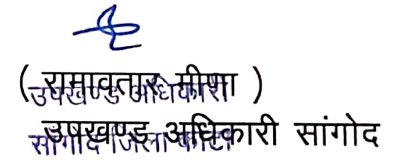 ( रामावतार मीणा )
उपखण्ड अधिकारी
उपखण्ड अधिकारी सांगोद
सांगोद जिला कोटा